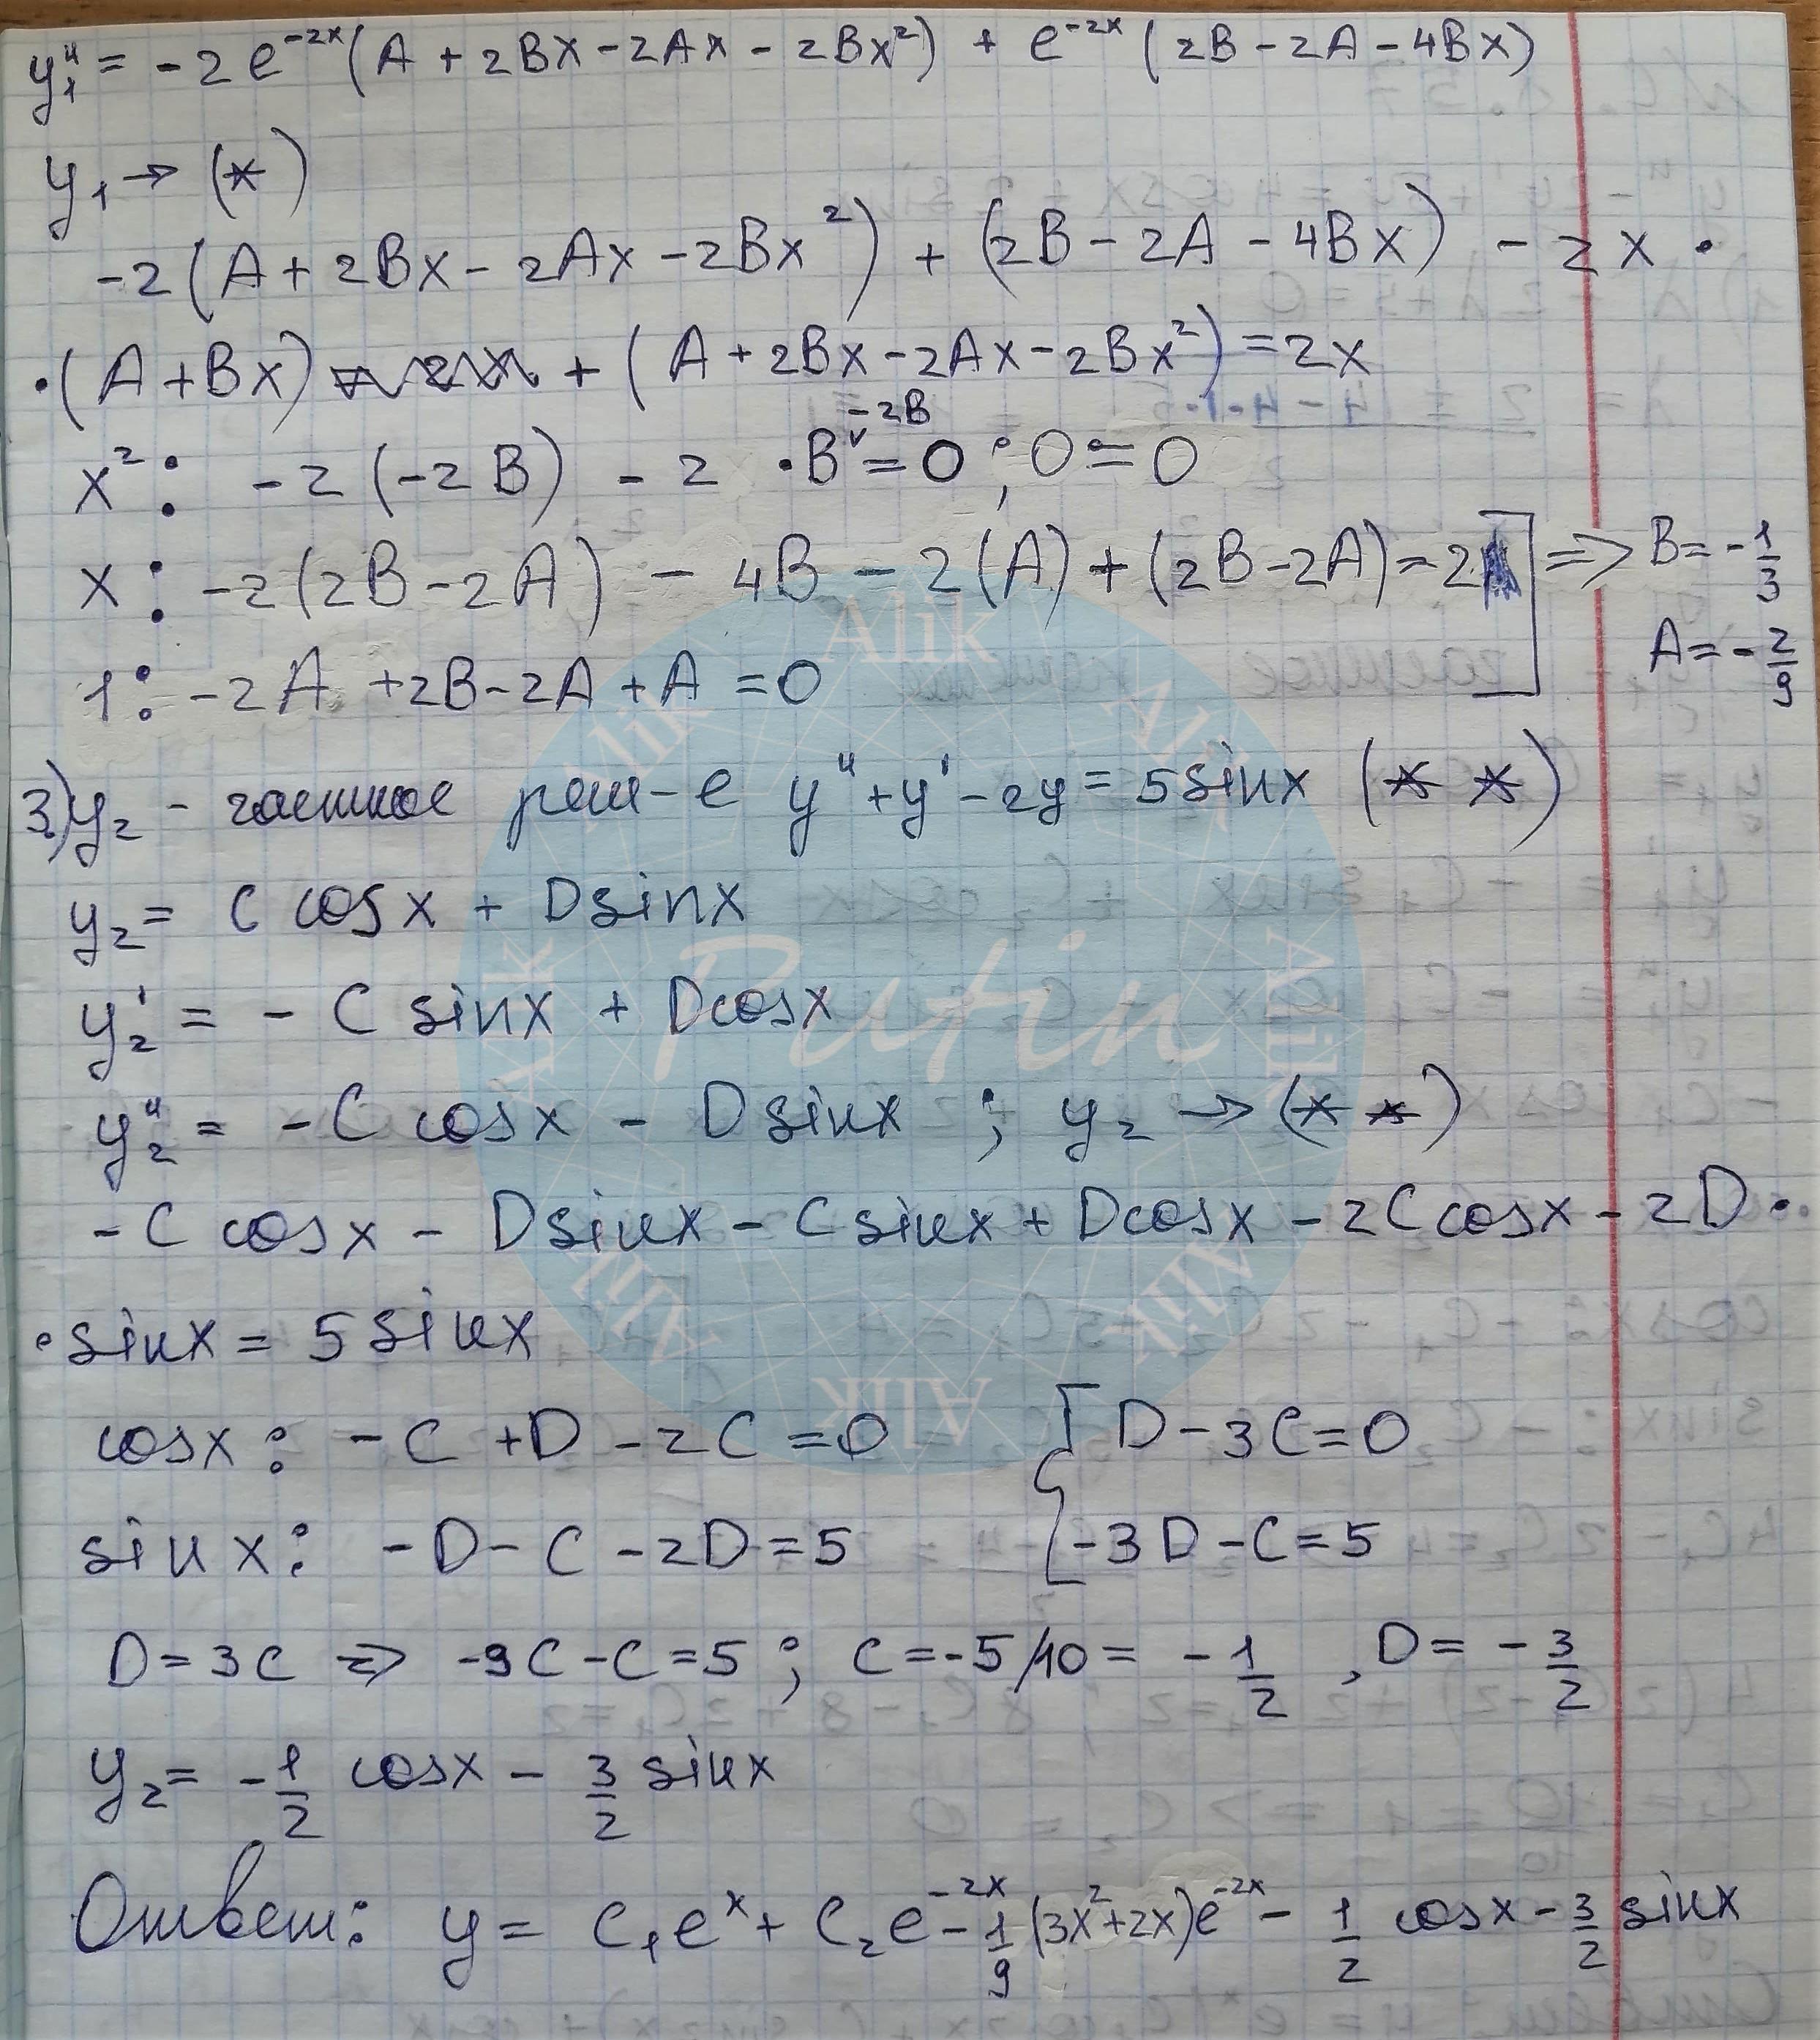 y₁'' = -2e^{-2x}(A + 2Bx - 2Ax - 2Bx²) + e^{-2x}(2B - 2A - 4Bx)
y₁ → (*)
-2(A + 2Bx - 2Ax - 2Bx²) + (2B - 2A - 4Bx) - 2x·
·(A + Bx) + (A + 2Bx - 2Ax - 2Bx²) = 2x
x²: -2(-2B) - 2·B -2B = 0; 0 = 0
x: -2(2B - 2A) - 4B - 2(A) + (2B - 2A) = 2 ] => B = -1/3
1: -2A + 2B - 2A + A = 0 A = -2/9
3.) y₂ - частное реш-е y'' + y' - 2y = 5sinx (**)
y₂ = C cosx + Dsinx
y₂' = -C sinx + Dcosx
y₂'' = -C cosx - Dsinx ; y₂ → (**)
-C cosx - Dsinx - Csinx + Dcosx - 2Ccosx - 2D·
·sinx = 5sinx
cosx: -C + D - 2C = 0 { D - 3C = 0
sinx: -D - C - 2D = 5 -3D - C = 5
D = 3C => -9C - C = 5; C = -5/10 = -1/2, D = -3/2
y₂ = -1/2 cosx - 3/2 sinx
Ответ: y = C₁e^x + C₂e^{-2x} - 1/9 (3x² + 2x)e^{-2x} - 1/2 cosx - 3/2 sinx
Alik
Alik
Alik
Alik
Alik
Alik
Alik
Alik
Putin